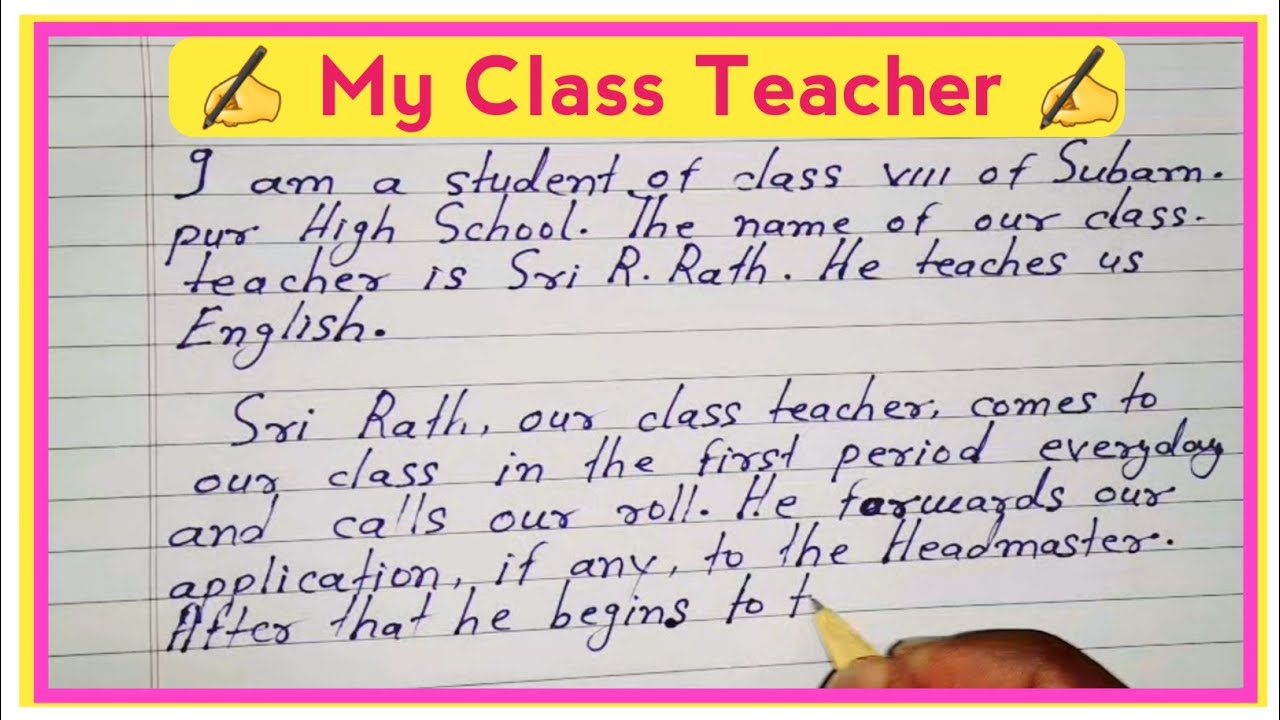 My Class Teacher
I am a student of class VIII of Subarn.
pur High School. The name of our class-
teacher is Sri R. Rath. He teaches us
English.
Sri Rath, our class teacher, comes to
our class in the first period everyday
and calls our roll. He forwards our
application, if any, to the Headmaster.
After that he begins to t